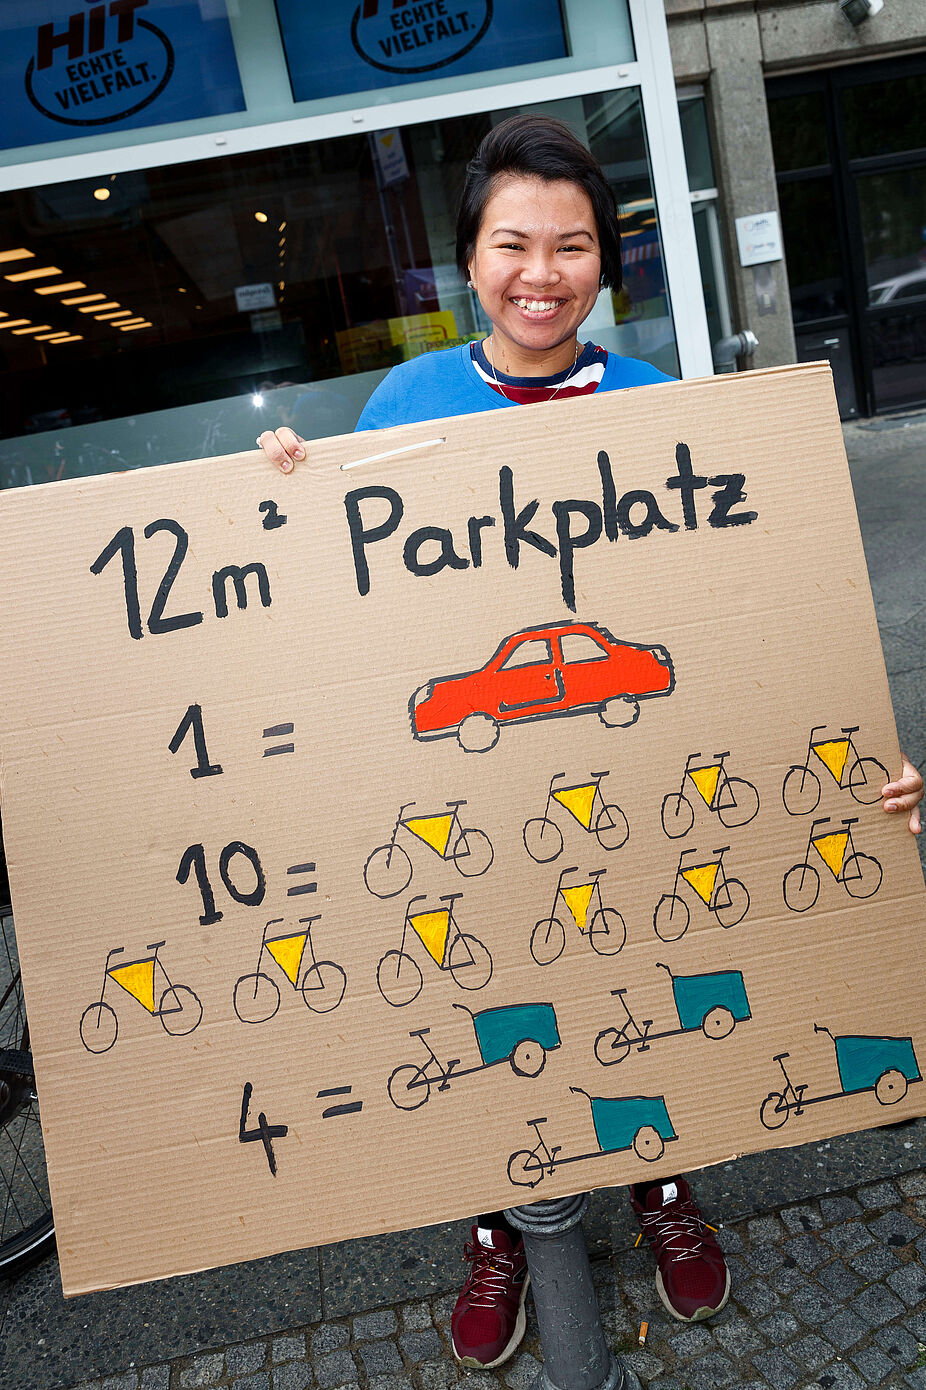 HIT
ECHTE
VIELFALT.
HIT
ECHTE
VIELFALT.
12m² Parkplatz
1 =
10 =
4 =